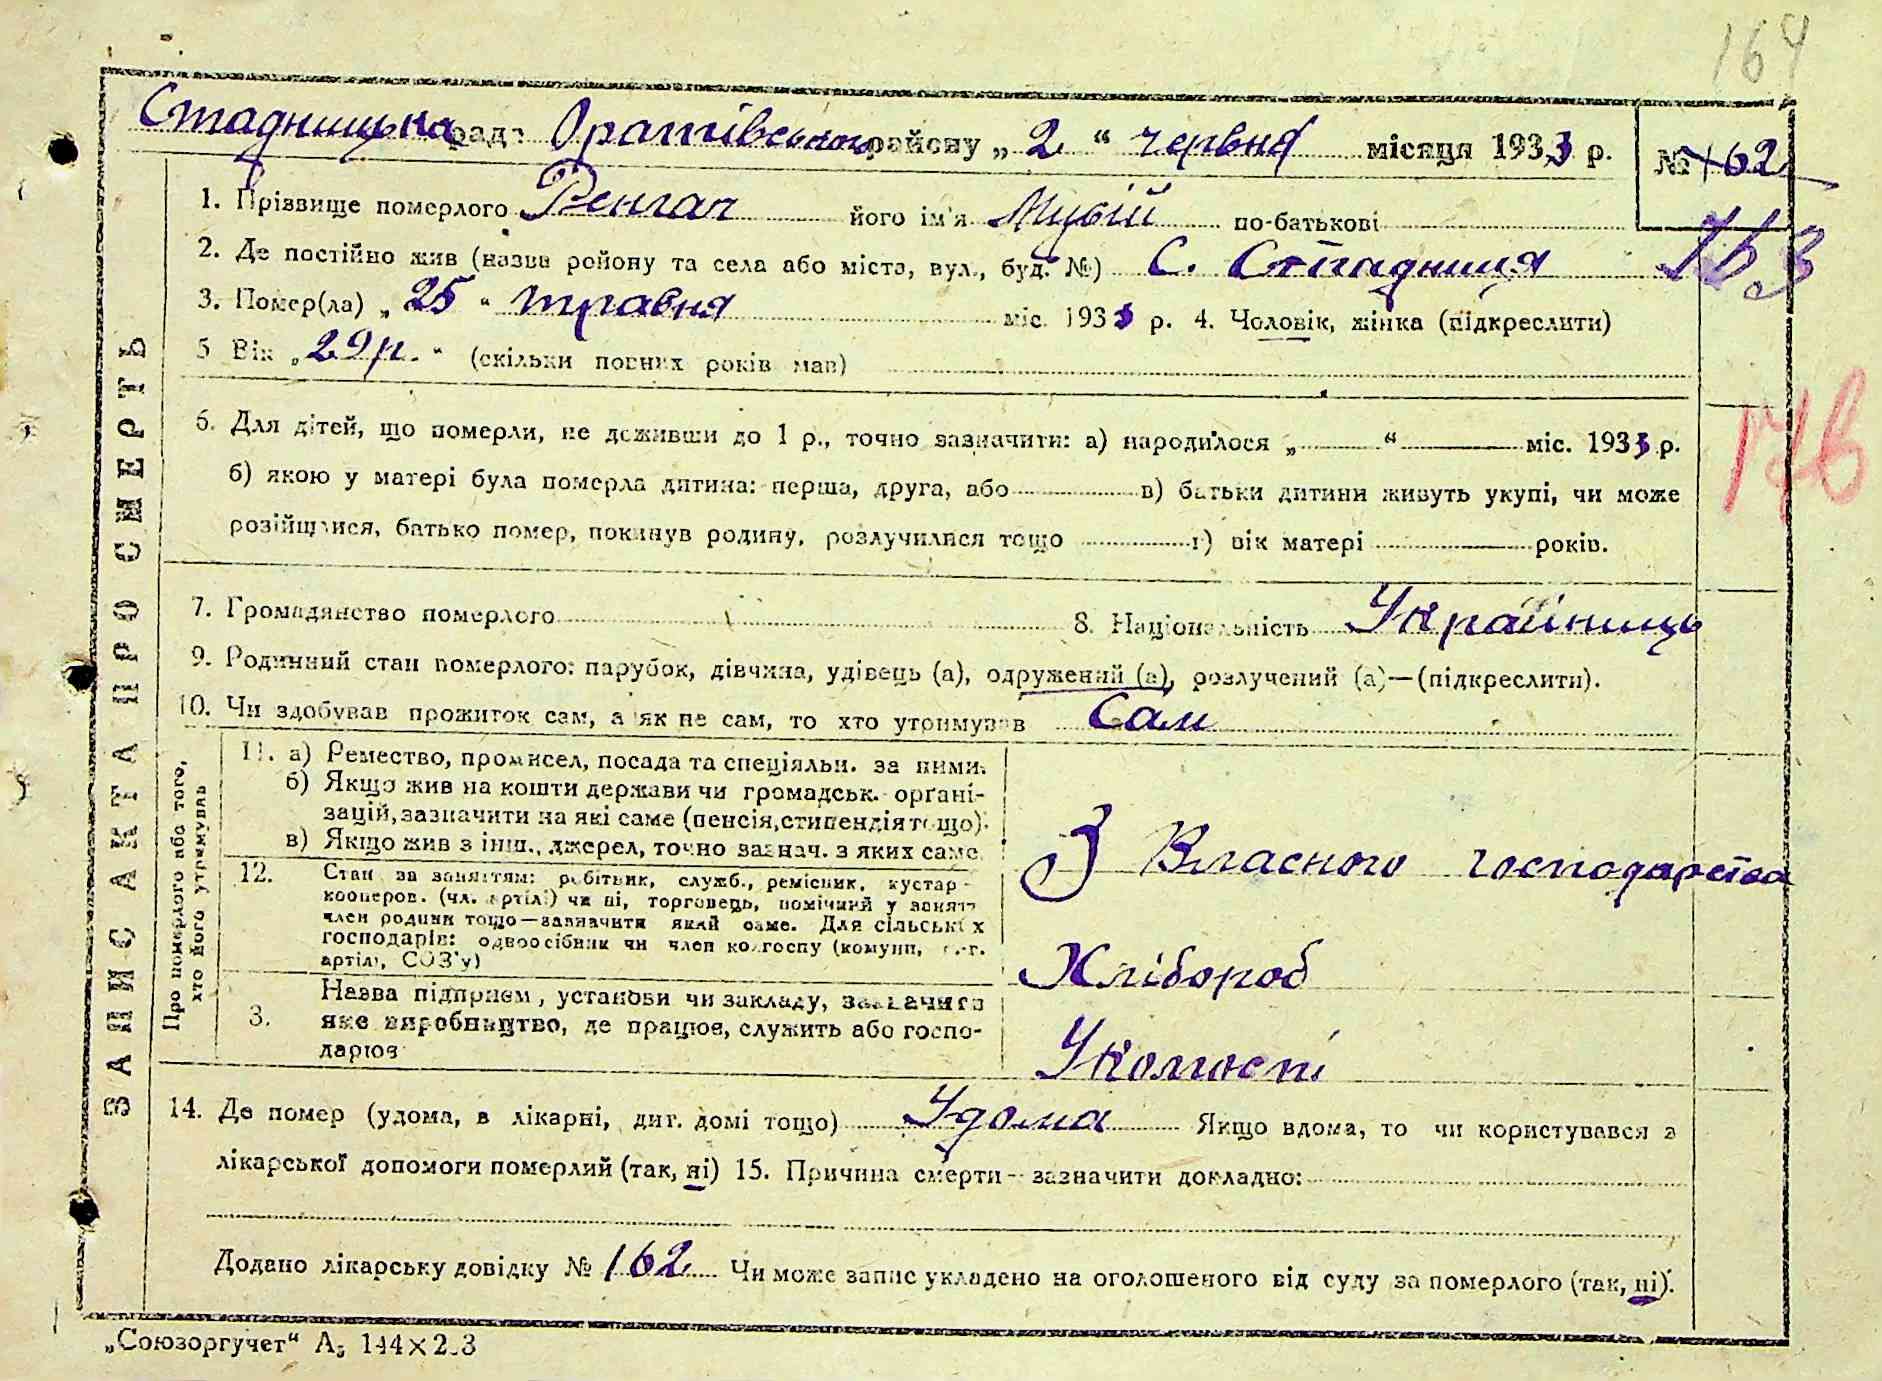 164
Стадницька рада Оратівського району „2“ червня місяця 1933 р. № 162
163
1. Прізвище померлого Ренгач його ім'я Мусій по-батькові
2. Де постійно жив (назва району та села або міста, вул., буд. №) С. Стадниця
3. Помер(ла) „25“ травня міс. 1933 р. 4. Чоловік, жінка (підкреслити)
5 Вік „29 р.“ (скільки повних років мав)
6. Для дітей, що померли, не доживши до 1 р., точно зазначити: а) народилося „ “ міс. 1933 р.
176
б) якою у матері була померла дитина: перша, друга, або в) батьки дитини живуть укупі, чи може
розійшлися, батько помер, покинув родину, розлучилися тощо г) вік матері років.
7. Громадянство померлого 8. Національність Українець
9. Родинний стан померлого: парубок, дівчина, удівець (а), одружений (а), розлучений (а)—(підкреслити).
10. Чи здобував прожиток сам, а як не сам, то хто утримував Сам
ЗАПИС АКТА ПРО СМЕРТЬ
Про померлого або того,
хто його утримував
11. а) Ремество, промисел, посада та спеціяльн. за ними.
б) Якщо жив на кошти держави чи громадськ. орґані-
зацій, зазначити на які саме (пенсія, стипендія тощо).
в) Якщо жив з інш., джерел, точно зазнач. з яких саме.
З Власного господарства
12. Стан за заняттям: робітник, служб., ремісник, кустар-
кооперов. (чл. артілі) чи ні, торговець, помічний у занятт
член родини тощо—зазначити який саме. Для сільських
господарів: одноосібник чи член колгоспу (комуни, с.-г.
артілі, СОЗ'у)
Хлібороб
3. Назва підприєм, установи чи закладу, зазначити
яке виробництво, де працює, служить або госпо-
дарює
14. Де помер (удома, в лікарні, дит. домі тощо) Удома Якщо вдома, то чи користувався з
лікарської допомоги померлий (так, ні) 15. Причина смерти – зазначити докладно:
Додано лікарську довідку № 162 Чи може запис укладено на оголошеного від суду за померлого (так, ні).
„Союзоргучет“ А5 144×2.3